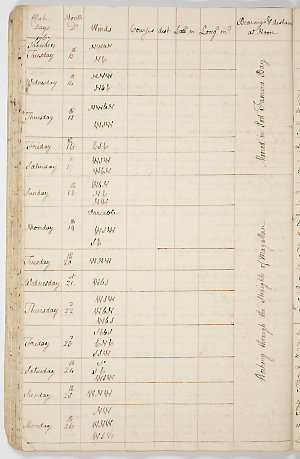 Week Days Month Dy Winds Courses dist Lat in Longd in Bearings & distance at Noon
Tuesday 13
NE
Wednesday 14 NNW
NbE
Thursday 15 NNbW
WSW
Friday 16 EbE
Saturday 17 WSW
WbN
Sunday 18 WbN
NE
NW
Variable
Monday 19 WSW
SE
Tuesday 20 WNW
Wednesday 21st WbS
WSW
Thursday 22 WbN
WbS
SbE
Friday 23 ENE
SSW
Saturday 24 SE
WSW
Sunday 25 WNW
NW
Monday 26 WNW
WSW
Moor'd in Port Famine Bay
Working through the Streights of Magellan